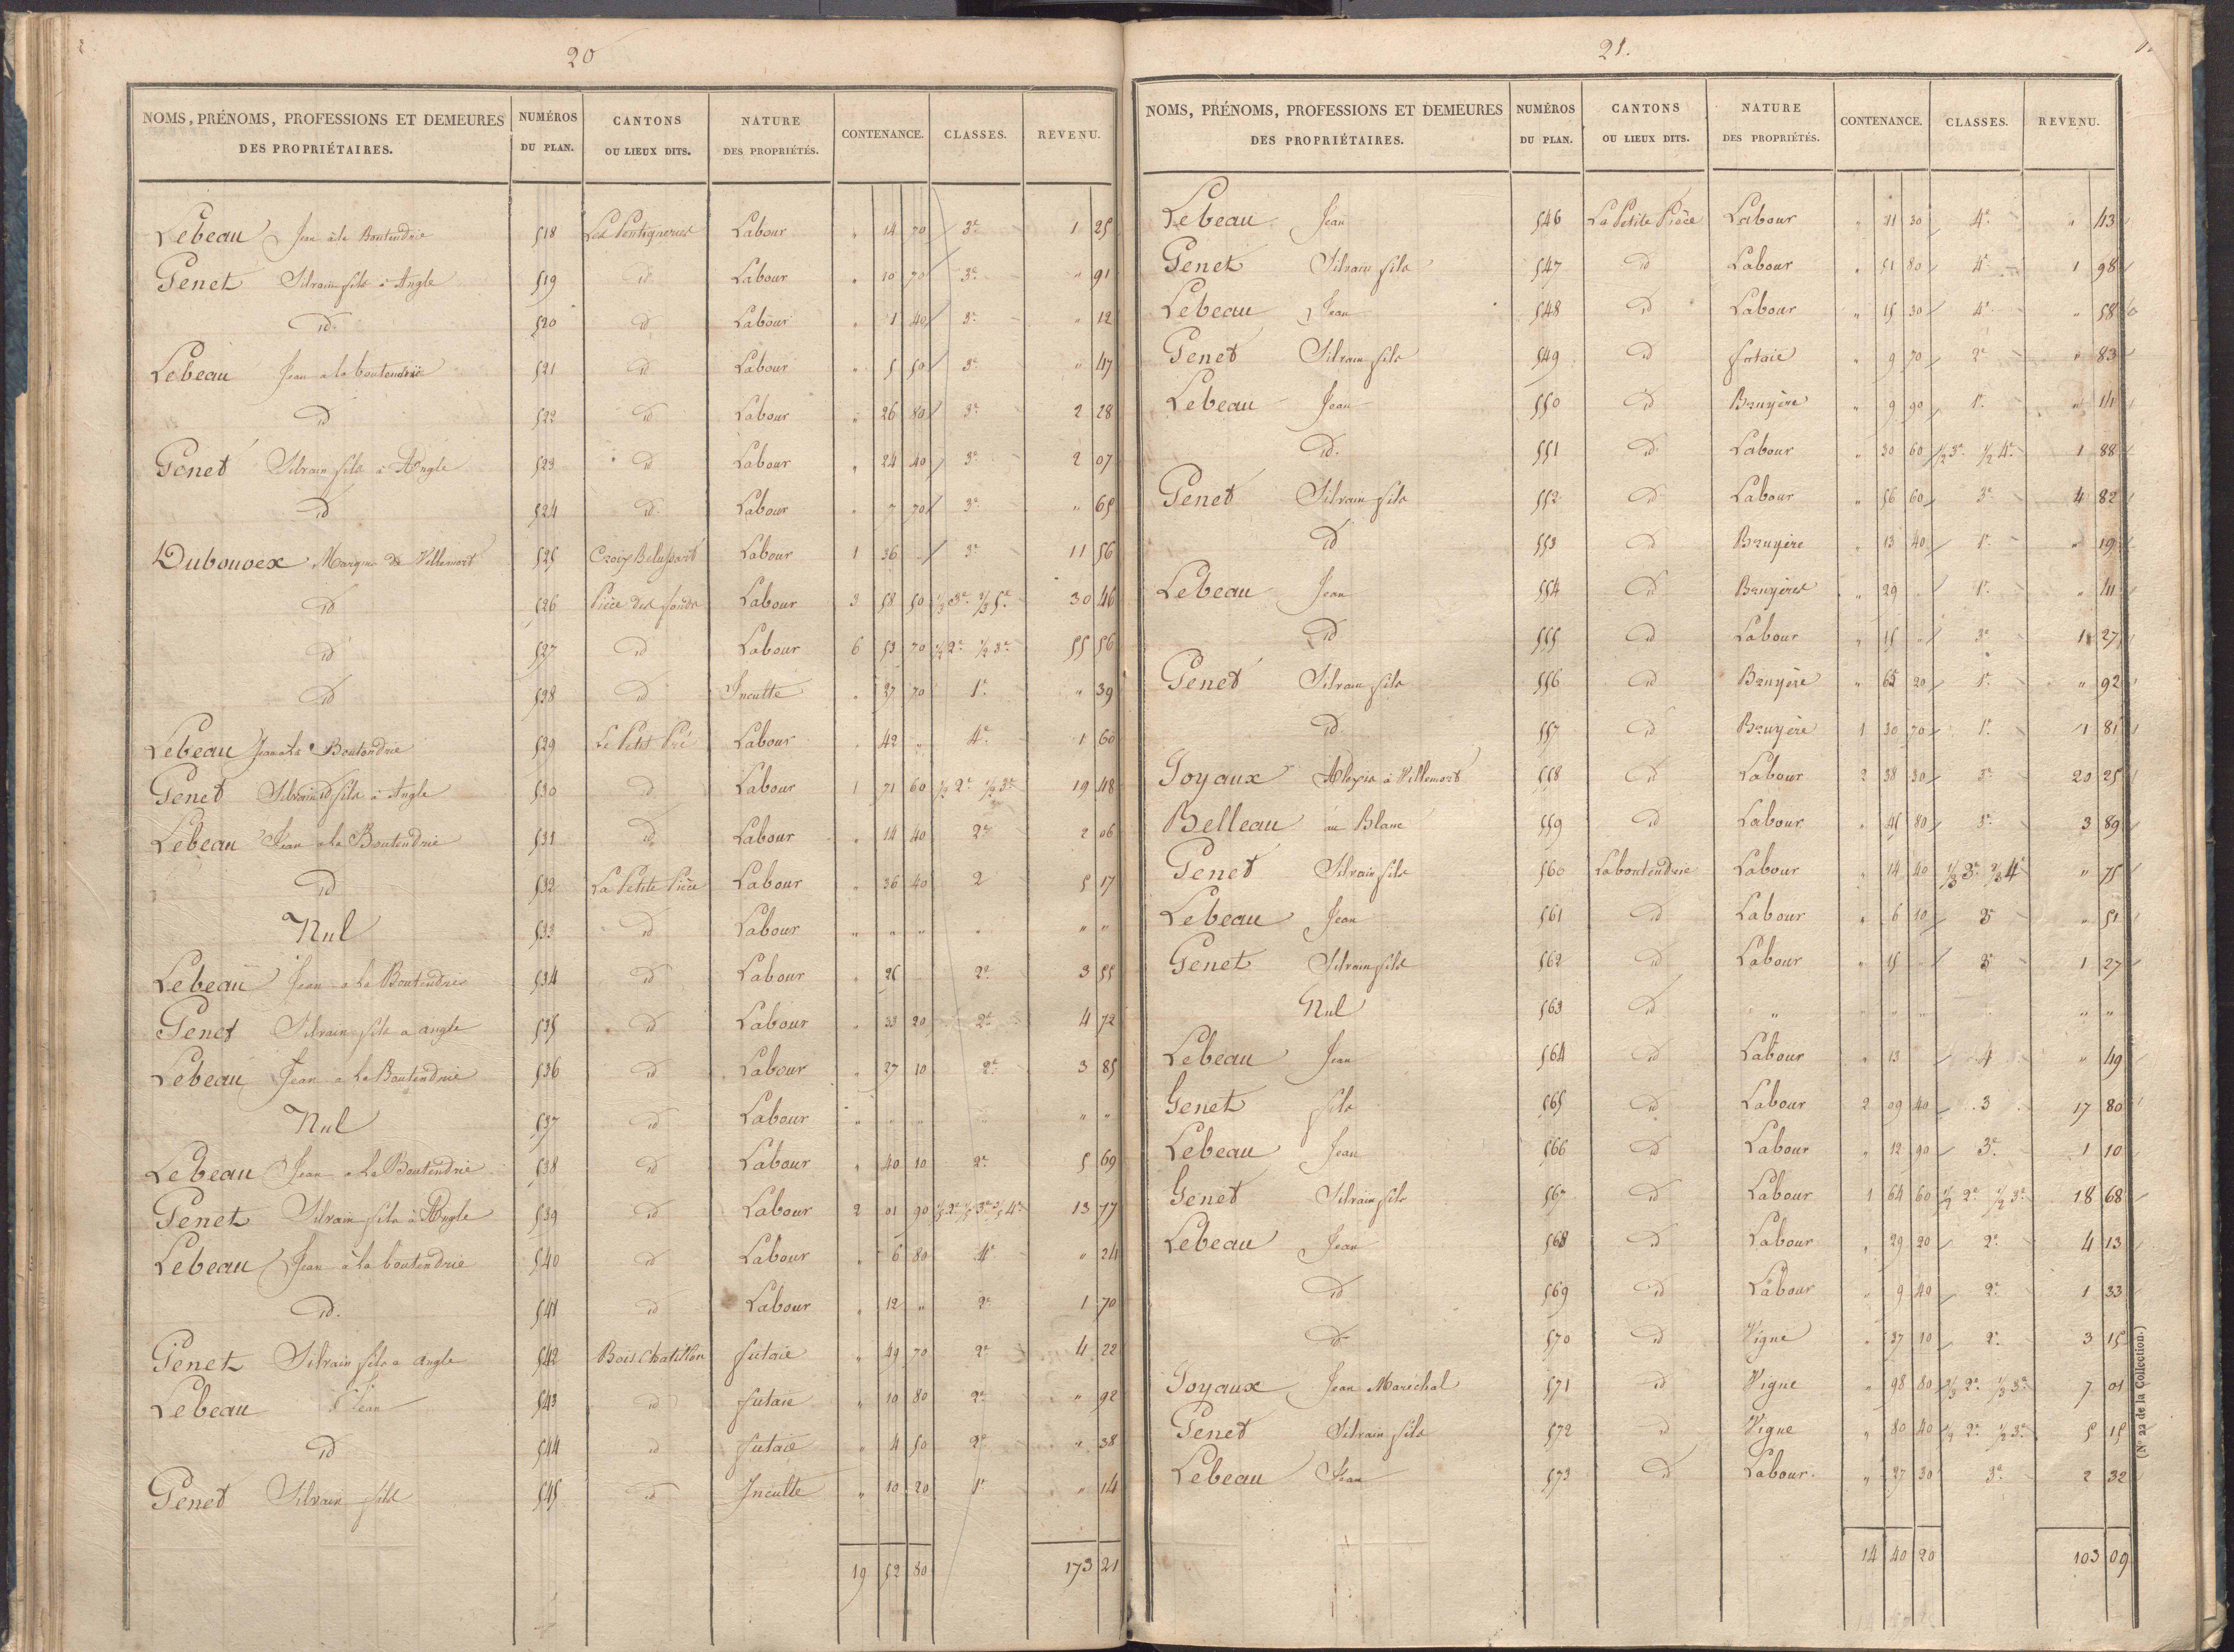 20
NOMS, PRÉNOMS, PROFESSIONS ET DEMEURES DES PROPRIÉTAIRES. NUMÉROS DU PLAN. CANTONS OU LIEUX DITS. NATURE DES PROPRIÉTÉS. CONTENANCE. CLASSES. REVENU.
Lebeau Jean à la Boutendrie 518 Labour " 14 70 3e 1 25
Genet Silvain fils à Angle 519 id Labour " 10 70 3e " 91
id 520 id Labour " 1 40 3e " 12
Lebeau Jean a la boutendrie 521 id Labour " 5 50 3e " 47
id 522 id Labour " 26 80 3e 2 28
Genet Silvain fils à Angle 523 id Labour " 24 40 3e 2 07
id 524 id Labour " 7 70 3e " 65
Dubouoex Marquis de Villemort 525 Croix Labour 1 36 " 3e 11 56
id 526 Pièce des fonds Labour 3 58 50 1/3 3e 2/3 5e 30 46
id 527 id Labour 6 53 70 1/2 2e 1/2 3e 55 56
id 528 id Inculte " 37 70 1e " 39
Lebeau Jean a La Boutendrie 529 Le Petit Pré Labour " 42 " 4e 1 60
Genet Silvain fils à Angle 530 id Labour 1 71 60 1/2 2e 1/2 3e 19 48
Lebeau Jean a la Boutendrie 531 id Labour " 14 40 2e 2 06
id 532 La Petite Pièce Labour " 36 40 2 5 17
Nul 533 id Labour " " " " " "
Lebeau Jean a La Boutendrie 534 id Labour " 25 " 2e 3 55
Genet Silvain fils a angle 535 id Labour " 33 20 2e 4 72
Lebeau Jean a La Boutendrie 536 id Labour " 27 10 2e 3 85
Nul 537 id Labour " " " " " "
Lebeau Jean a La Boutendrie 538 id Labour " 40 10 2e 5 69
Genet Silvain fils à Angle 539 id Labour 2 01 90 13 77
Lebeau Jean à la boutendrie 540 id Labour " 6 80 4e " 24
id. 541 id Labour " 12 " 2e 1 70
Genet Silvain fils a angle 542 Bois Chatillon futaie " 49 70 2e 4 22
Lebeau Jean 543 id futaie " 10 80 2e " 92
id 544 id futaie " 4 50 2e " 38
Genet Silvain fils 545 id Inculte " 10 20 1e " 14
19 52 80 173 21
21.
NOMS, PRÉNOMS, PROFESSIONS ET DEMEURES DES PROPRIÉTAIRES. NUMÉROS DU PLAN. CANTONS OU LIEUX DITS. NATURE DES PROPRIÉTÉS. CONTENANCE. CLASSES. REVENU.
Lebeau Jean 546 La Petite Pièce Labour " 11 30 4e " 43
Genet Silvain fils 547 id Labour " 51 80 4e 1 98
Lebeau Jean 548 id Labour " 15 30 4e " 58
Genet Silvain fils 549 id futaie " 9 70 2e " 83
Lebeau Jean 550 id Bruyère " 9 90 1e " 14
id. 551 id Labour " 30 60 1/2 3e 1/2 4e 1 88
Genet Silvain fils 552 id Labour " 56 60 3e 4 82
id 553 id Bruyère " 13 40 1e " 19
Lebeau Jean 554 id Bruyères " 29 " 1e " 41
id 555 id Labour " 15 " 3e 1 27
Genet Silvain fils 556 id Bruyère " 65 20 1e " 92
id 557 id Bruyère 1 30 70 1e 1 81
Joyaux Alexis à Villemort 558 id Labour 2 38 30 3e 20 25
Belleau au Blanc 559 id Labour " 45 80 3e 3 89
Genet Silvain fils 560 Laboutendrie Labour " 14 40 1/3 3e 2/3 4e " 75
Lebeau Jean 561 id Labour " 6 10 3e " 51
Genet Silvain fils 562 id Labour " 15 " 3e 1 27
Nul 563 id " " " " " " "
Lebeau Jean 564 id Labour " 13 4 " 49
Genet fils 565 id Labour 2 09 40 3 17 80
Lebeau Jean 566 id Labour " 12 90 3e 1 10
Genet Silvain fils 567 id Labour 1 64 60 1/2 2e 1/2 3e 18 68
Lebeau Jean 568 id Labour " 29 20 2e 4 13
id 569 id Labour " 9 40 2e 1 33
id 570 id Vigne " 37 10 2e 3 15
Joyaux Jean Maréchal 571 id Vigne " 98 80 2/3 2e 1/3 3e 7 01
Genet Silvain fils 572 id Vigne " 80 40 1/2 2e 1/2 3e 5 15
Lebeau Jean 573 id Labour " 27 30 3e 2 32
14 40 20 103 09
(N° 22 de la Collection.)